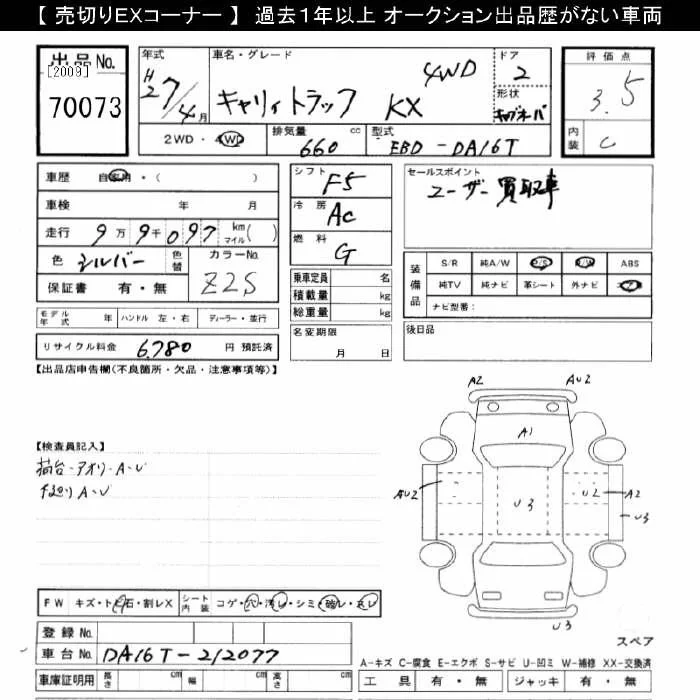 【 売切りEXコーナー 】 過去１年以上 オークション出品歴がない車両
出品No.
[2009]
70073
年式
H27/4月
車名・グレード
キャリイトラック KX 4WD
ドア
2
形状
キャブオーバ
評価点
3.5
内装
C
2WD ・ 4WD
排気量 660 cc
型式 EBD-DA16T
車歴 自家用・( )
車検 年 月
走行 9万9千097 km マイル( )
色 シルバー 色替
カラーNo. Z2S
保証書 有・無
シフト F5
冷房 AC
燃料 G
乗車定員 名
積載量 kg
総重量 kg
名変期限
月 日
セールスポイント
ユーザー買取車
装備品
S/R 純A/W P/S P/W ABS
純TV 純ナビ 革シート 外ナビ
ナビ型番：
後日品
モデル年式 年 ハンドル 左・右 ディーラー・並行
リサイクル料金 6,780 円 預託済
【出品店申告欄(不良箇所・欠品・注意事項等)】
【検査員記入】
荷台-アオリ-A-U
下廻り A-U
A2
AU2
A1
AU2
U3
U2
A2
U3
U3
スペア
FW キズ・ト石・割レX
シート内装 コゲ・穴・汚レ・シミ・破レ・スレ
登録No.
車台No. DA16T-212077
車庫証明用 長さ cm 幅 cm 高さ cm
A-キズ C-腐食 E-エクボ S-サビ U-凹ミ W-補修 XX-交換済
工具 有・無 ジャッキ 有・無